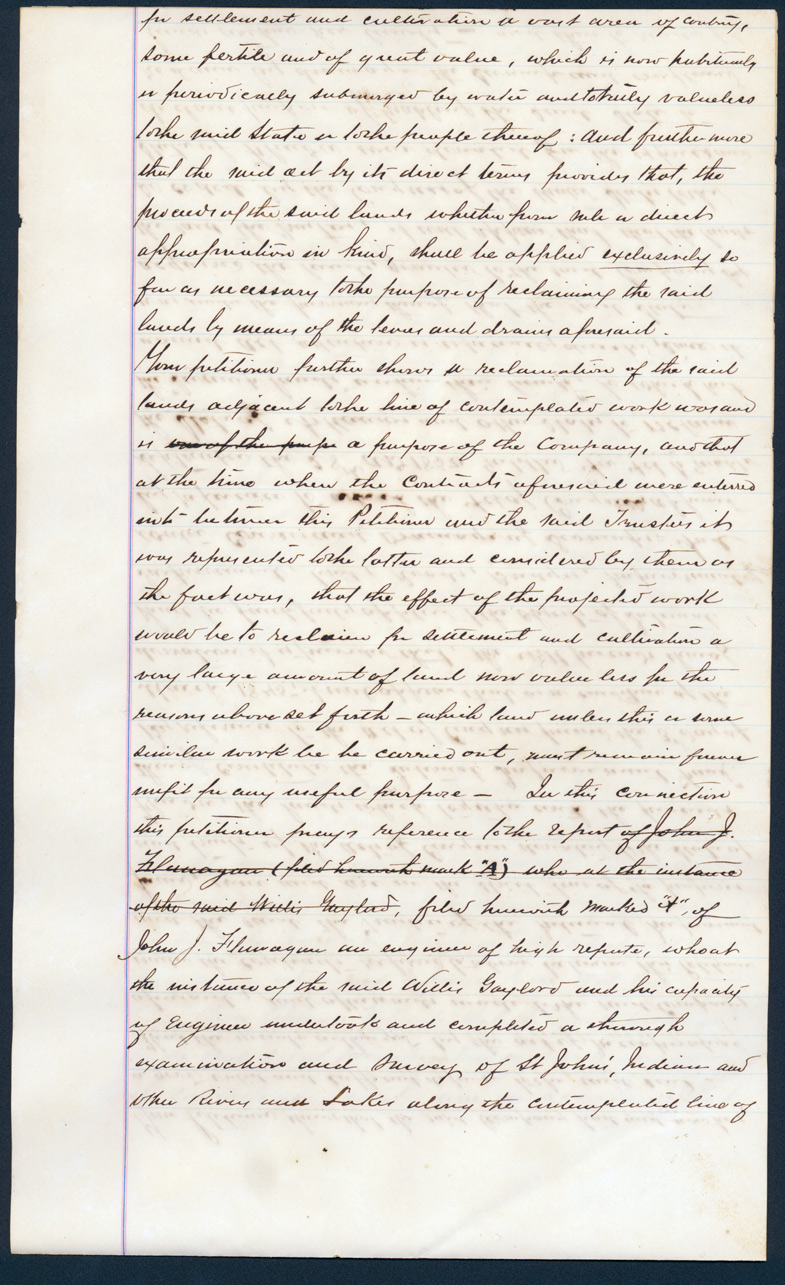 for settlement and cultivation a vast area of country,
some fertile and of great value, which is now habitually
or periodically submerged by water and totally valueless
to the said State or to the people thereof: and furthermore
that the said act by its direct terms provides that, the
proceeds of the said lands whether from sale or direct
appropriation in kind, shall be applied exclusively so
far as necessary to the purpose of reclaiming the said
lands by means of the levees and drains aforesaid.
Your petitioner further shows a reclamation of the said
lands adjacent to the line of contemplated work was and
is one of the purps a purpose of the Company, and that
at the time when the Contracts aforesaid were entered
into between this Petitioner and the said Trustees it
was represented to the latter and considered by them as
the fact was, that the effect of the projected work
would be to reclaim for settlement and cultivation a
very large amount of land now valueless for the
reasons above set forth – which land unless this or some
similar work be be carried out, must remain forever
unfit for any useful purpose – In this connection
this petitioner prays reference to the report of John J.
Flanagan (filed herewith mark "A") who at the instance
of the said Willis Gaylord, filed herewith marked "A", of
John J. Flanagan an engineer of high repute, who at
the instance of the said Willis Gaylord and his capacity
of Engineer undertook and completed a thorough
examination and survey of St Johns', Indian and
other Rivers and Lakes along the contemplated line of